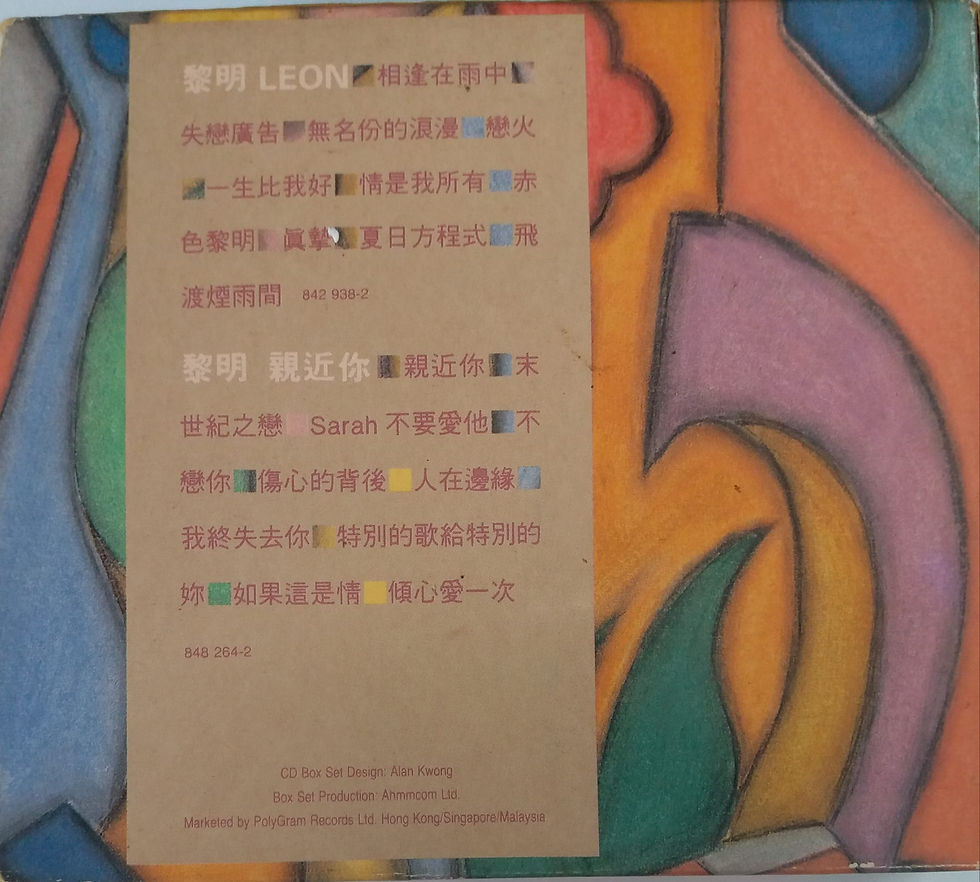 黎明 LEON 相逢在雨中
失戀廣告 無名份的浪漫 戀火
一生比我好 情是我所有 赤
色黎明 眞摯 夏日方程式 飛
渡煙雨間 842 938-2
黎明 親近你 親近你 末
世紀之戀 Sarah 不要愛他 不
戀你 傷心的背後 人在邊緣
我終失去你 特別的歌給特別的
妳 如果這是情 傾心愛一次
848 264-2
CD Box Set Design: Alan Kwong
Box Set Production: Ahmmcom Ltd.
Marketed by PolyGram Records Ltd. Hong Kong/Singapore/Malaysia